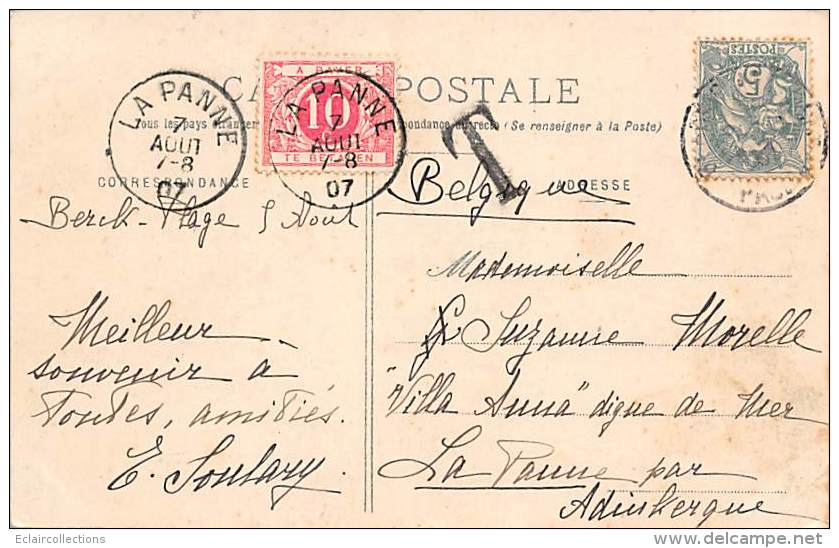 CA POSTALE
Tous les pays étrangers pondance au recto (Se renseigner à la Poste)
CORRESPONDANCE
ADRESSE
LA PANNE
7
AOUT
7-8
07
A PAYER
10
TE BETALEN
LA PANNE
7
AOUT
7-8
07
T
POSTES
5
Berck-Plage 5 Aout
Meilleur
souvenir à
Toutes, amitiés.
E. Soulary.
Belgique
Mademoiselle
Suzanne Morelle
"Villa Anna" digue de Mer
La Panne par
Adinkerque
Eclaircollections
delcampe.net